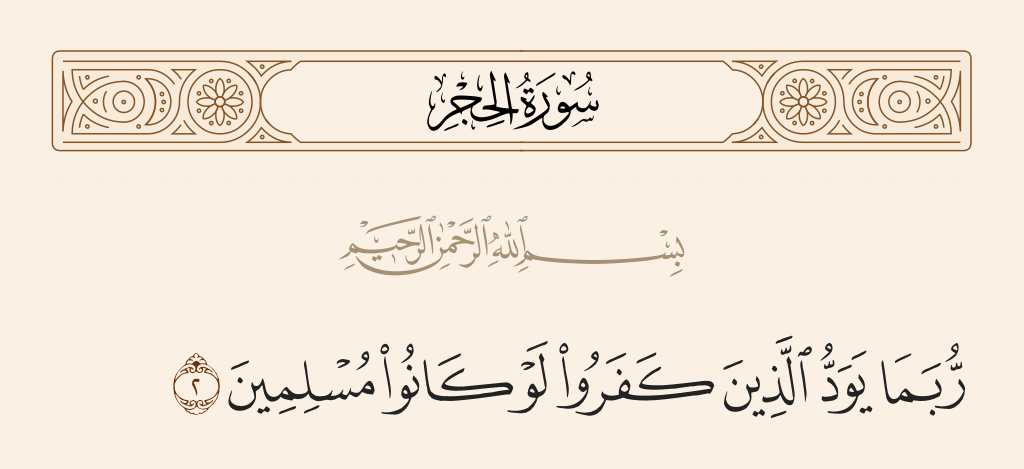 سُورَةُ الحِجْرِ
بِسْمِ ٱللَّهِ ٱلرَّحْمَٰنِ ٱلرَّحِيمِ
رُّبَمَا يَوَدُّ ٱلَّذِينَ كَفَرُوا۟ لَوْ كَانُوا۟ مُسْلِمِينَ ٢